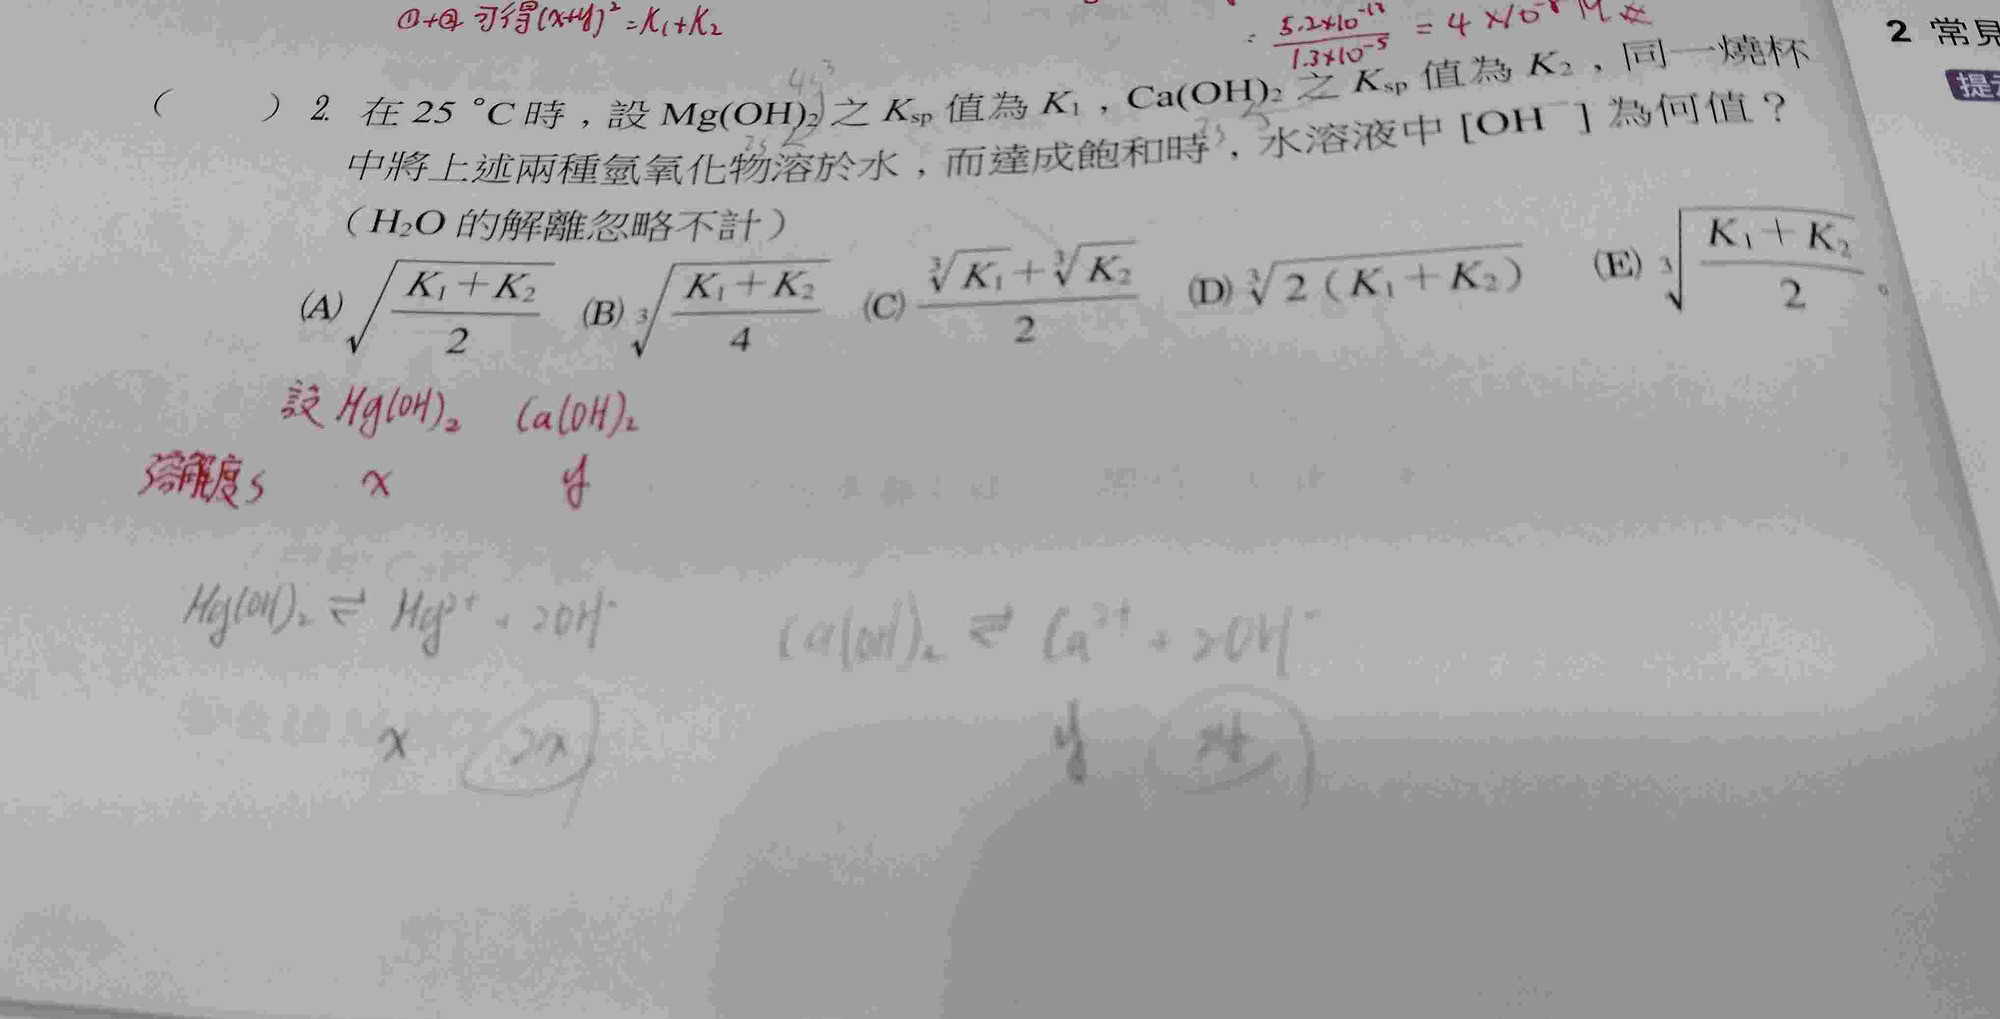 ①+② 可得(x+y)² = K₁+K₂
= 5.2×10⁻¹³ / 1.3×10⁻⁵ = 4×10⁻⁸ M
2 常見
提示
( ) 2. 在 25 °C 時,設 Mg(OH)₂ 之 Ksp 值為 K₁,Ca(OH)₂ 之 Ksp 值為 K₂,同一燒杯
中將上述兩種氫氧化物溶於水,而達成飽和時,水溶液中 [OH⁻] 為何值?
(H₂O 的解離忽略不計)
(A) √((K₁+K₂)/2) (B) ³√((K₁+K₂)/4) (C) (³√K₁+³√K₂)/2 (D) ³√(2(K₁+K₂)) (E) ³√((K₁+K₂)/2)。
設 Mg(OH)₂ Ca(OH)₂
溶解度 s x y
Mg(OH)₂ ⇌ Mg²⁺ + 2OH⁻ Ca(OH)₂ ⇌ Ca²⁺ + 2OH⁻
x 2x y 2y